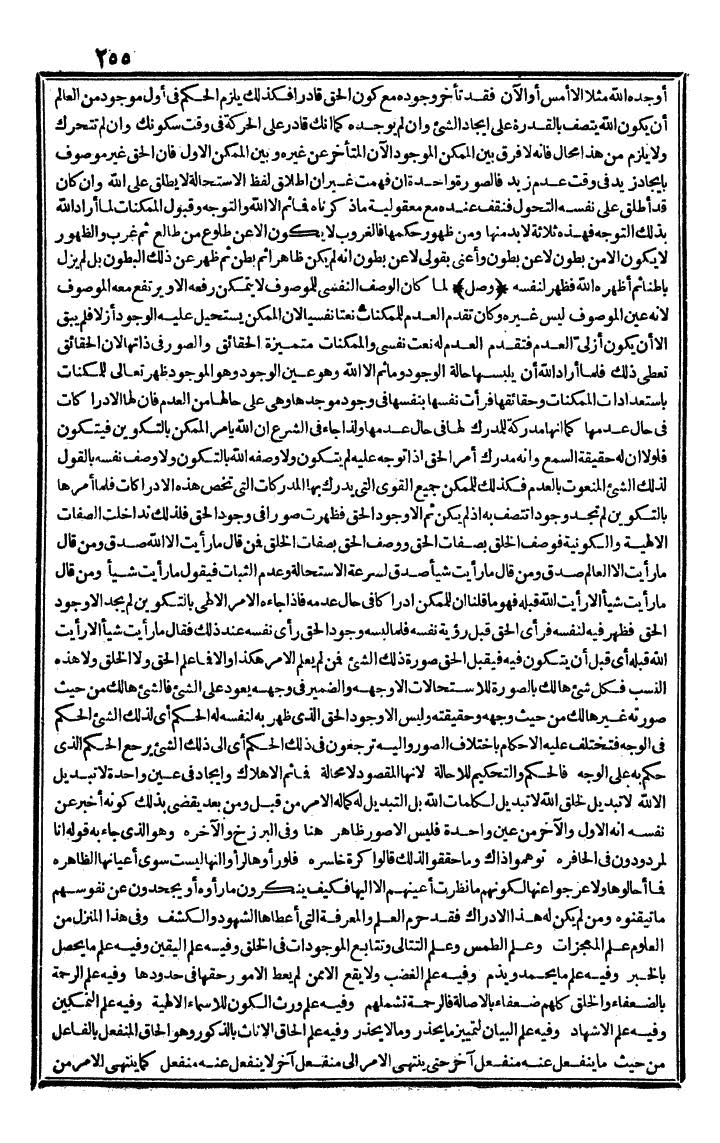 ٢٥٥
أوجده الله مثلا الا أمس أو الآن فقد تأخر وجوده مع كون الحق قادرا فكذلك يلزم الحكم فى أول موجود من العالم
أن يكون الله يتصف بالقدرة على ايجاد الشئ وان لم يوجده كما انك قادر على الحركة فى وقت سكونك وان لم تتحرك
ولا يلزم من هذا محال فانه لا فرق بين الممكن الموجود الآن المتأخر عن غيره وبين الممكن الاول فان الحق غير موصوف
بايجاد زيد فى وقت عدم زيد فالصورة واحدة ان فهمت غير ان اطلاق لفظ الاستحالة لا يطلق على الله وان كان
قد أطلق على نفسه التحول فنقف عنده مع معقولية ما ذكرناه فما ثم الا الله والتوجه وقبول الممكنات لما أراد الله
بذلك التوجه فهذه ثلاثة لا بد منها ومن ظهور حكمها فالغروب لا يكون الا عن طلوع من طالع ثم غرب والظهور
لا يكون الا من بطون لا عن بطون وأعنى بقولى لا عن بطون انه لم يكن ظاهرا ثم بطن ثم ظهر عن ذلك البطون بل لم يزل
باطنا ثم أظهره الله فظهر لنفسه ﴿وصل﴾ لما كان الوصف النفسى للموصوف لا يتمكن رفعه الا ويرتفع معه الموصوف
لانه عين الموصوف ليس غيره وكان تقدم العدم للممكنات نعتا نفسيا لان الممكن يستحيل عليه الوجود أزلا فلم يبق
الا أن يكون أزلى العدم فتقدم العدم له نعت نفسى والممكنات متميزة الحقائق والصور فى ذاتها لان الحقائق
تعطى ذلك فلما أراد الله أن يلبسها حالة الوجود وما ثم الا الله وهو عين الوجود وهو الموجود ظهر تعالى للمكنات
باستعدادات الممكنات وحقائقها فرأت نفسها بنفسها فى وجود موجدها وهى على حالها من العدم فان لها الادراكات
فى حال عدمها كما انها مدركة للمدرك لها فى حال عدمها ولذا جاء فى الشرع ان الله يامر الممكن بالتكوين فيتكون
فلولا ان له حقيقة السمع وانه مدرك أمر الحق اذا توجه عليه لم يتكون ولا وصفه الله بالتكون ولا وصف نفسه بالقول
لذلك الشئ المنعوت بالعدم فكذلك للممكن جميع القوى التى يدرك بها المدركات التى تخص هذه الادراكات فلما أمرها
بالتكوين لم تجد وجودا تتصف به اذ لم يكن ثم الا وجود الحق فظهرت صورا فى وجود الحق فلذلك تداخلت الصفات
الالهية والكونية فوصف الخلق بصفات الحق ووصف الحق بصفات الخلق فمن قال ما رأيت الا الله صدق ومن قال
ما رأيت الا العالم صدق ومن قال ما رأيت شيأ صدق لسرعة الاستحالة وعدم الثبات فيقول ما رأيت شيأ ومن قال
ما رأيت شيأ الا رأيت الله قبله فهو ما قلنا ان للممكن ادراكا فى حال عدمه فاذا جاءه الامر الالهى بالتكوين لم يجد الا وجود
الحق فظهر فيه لنفسه فرأى الحق قبل رؤية نفسه فلما لبسه وجود الحق رأى نفسه عند ذلك فقال ما رأيت شيأ الا رأيت
الله قبله أى قبل أن يتكون فيه فيقبل الحق صورة ذلك الشئ فمن لم يعلم الامر هكذا والا فما علم الحق ولا الخلق ولا هذه
النسب فكل شئ هالك بالصورة للاستحالات الا وجهه والضمير فى وجهه يعود على الشئ فالشئ هالك من حيث
صورته غير هالك من حيث وجهه وحقيقته وليس الا وجود الحق الذى ظهر به لنفسه له الحكم أى لذلك الشئ الحكم
فى الوجه فتختلف عليه الاحكام باختلاف الصور واليه ترجعون فى ذلك الحكم أى الى ذلك الشئ يرجع الحكم الذى
حكم به على الوجه فالحكم والتحكيم للاحالة لانها المقصود لا محالة فما ثم الا هلاك وايجاد فى عين واحدة لا تبديل
الا لله لا تبديل لخلق الله لا تبديل لكلمات الله بل التبديل له كما له الامر من قبل ومن بعد يقضى بذلك كونه أخبر عن
نفسه انه الاول والآخر من عين واحدة فليس الا صور ظاهر هنا وفى البرزخ والآخره وهو الذى جاء به قوله انا
لمردودون فى الحافره توهموا ذاك وما حققوا لذلك قالوا كرة خاسره فلو رأوها لرأوا انها ليست سوى أعيانها الظاهره
فما أحالوها ولا عرجوا عنها لكونهم ما نظرت أعينهم الا اليها فكيف ينكرون ما رأوه أو يجحدون عن نفوسهم
ما تيقنوه ومن لم يكن له هذا الادراك فقد حرم العلم والمعرفة التى أعطاها الشهود والكشف وفى هذا المنزل من
العلوم علم المعجزات وعلم الطمس وعلم التتالى وتتابع الموجودات فى الخلق وفيه علم اليقين وفيه علم ما يحصل
بالخبر وفيه علم ما يحمد ويذم وفيه علم الغضب ولا يقع الا ممن لم يعط الامور حقها فى حدودها وفيه علم الرحمة
بالضعفاء والخلق كلهم ضعفاء بالاصالة فالرحمة تشملهم وفيه علم ورث الكون للاسماء الالهية وفيه علم التمكين
وفيه علم الاشهاد وفيه علم البيان لتمييز ما يحذر وما لا يحذر وفيه علم الحاق الاناث بالذكور وهو الحاق المنفعل بالفاعل
من حيث ما ينفعل عنه منفعل آخر حتى ينتهى الامر الى منفعل آخر لا ينفعل عنه منفعل كما ينتهى الامر من